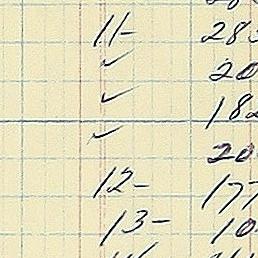 11- 283
✓ 20
✓ 182
✓ 20
12- 177
13- 10